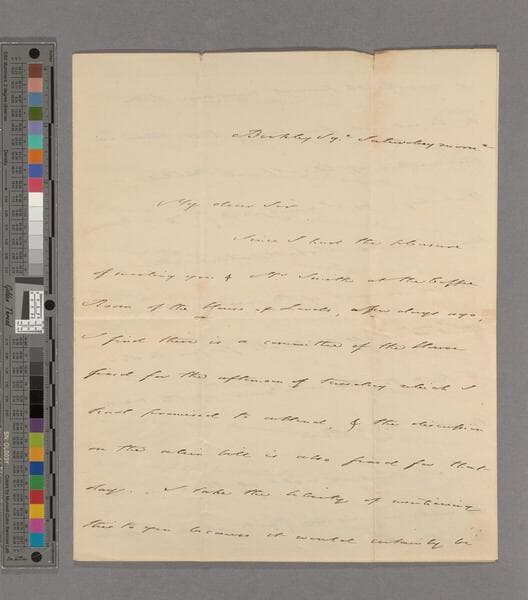 Berkley Sqe Saturday morng
My dear Sir
Since I had the pleasure
of meeting you & Mr Smith at the Coffee
Room of the House of Lords, a few days ago,
I find there is a committee of the House
fixed for the afternoon of Tuesday which I
had promised to attend, & the discussion
on the bill is also fixed for that
day. I take the liberty of mentioning
this to you because it would certainly be